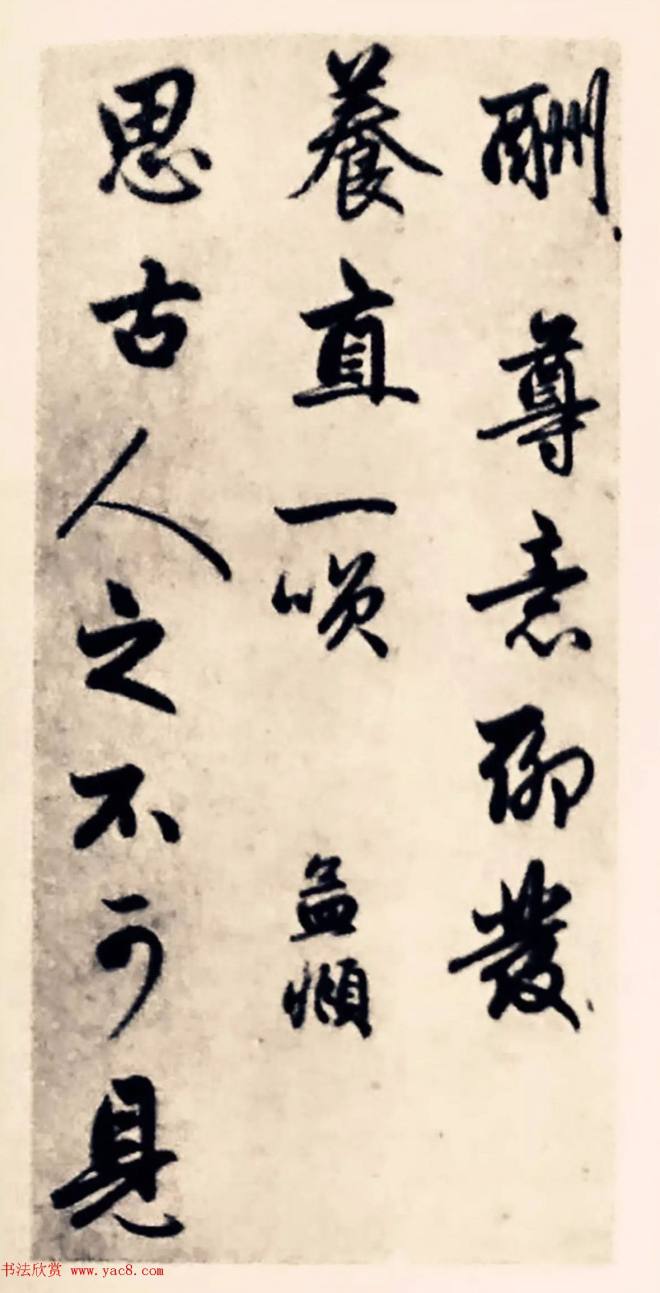 酬尊意聊發
養直一唄
孟頫
思古人之不可見
书法欣赏 www.yac8.com